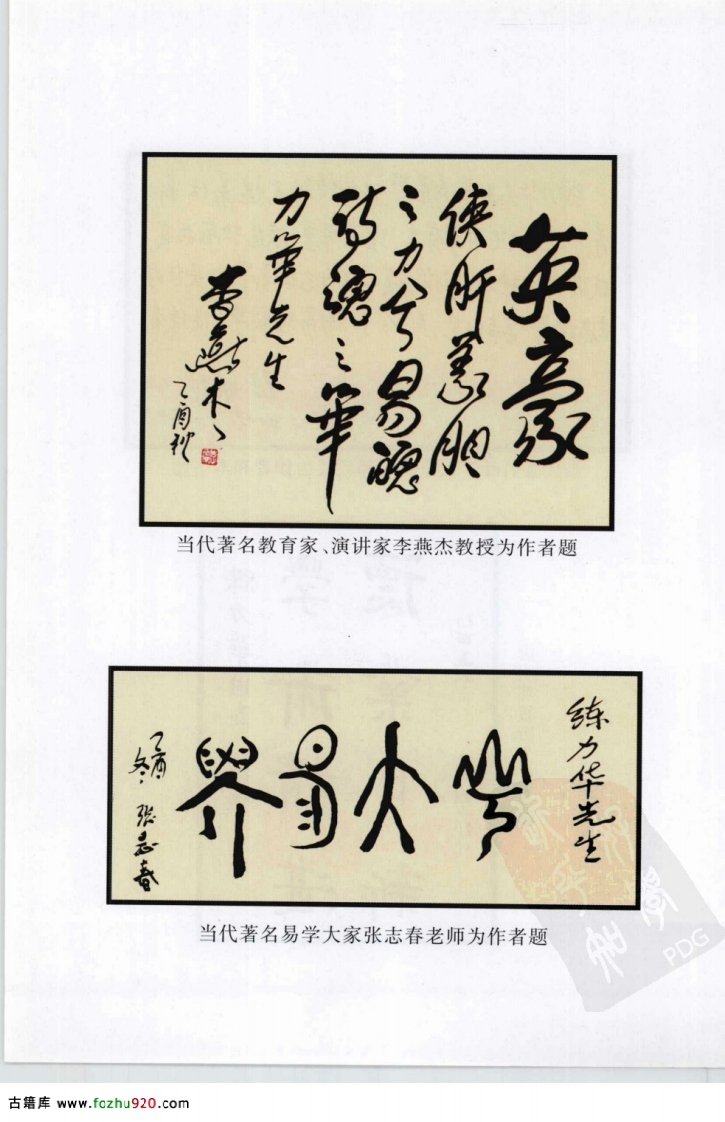 英豪
俠肝義胆
之力兮易魂
詩魂之華
力華先生
李燕杰
乙酉秋
当代著名教育家、演讲家李燕杰教授为作者题
练力华先生
大易
乙酉
冬 张志春
当代著名易学大家张志春老师为作者题
PDG
古籍库 www.fozhu920.com